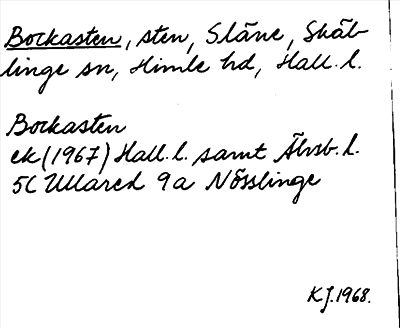 Bockasten, sten, Släne, Skäl-
linge sn, Himle hd, Hall. l.
Bockasten
ek (1967) Hall. l. samt Älvsb. l.
5C Ullared 9a Nösslinge
KJ. 1968.